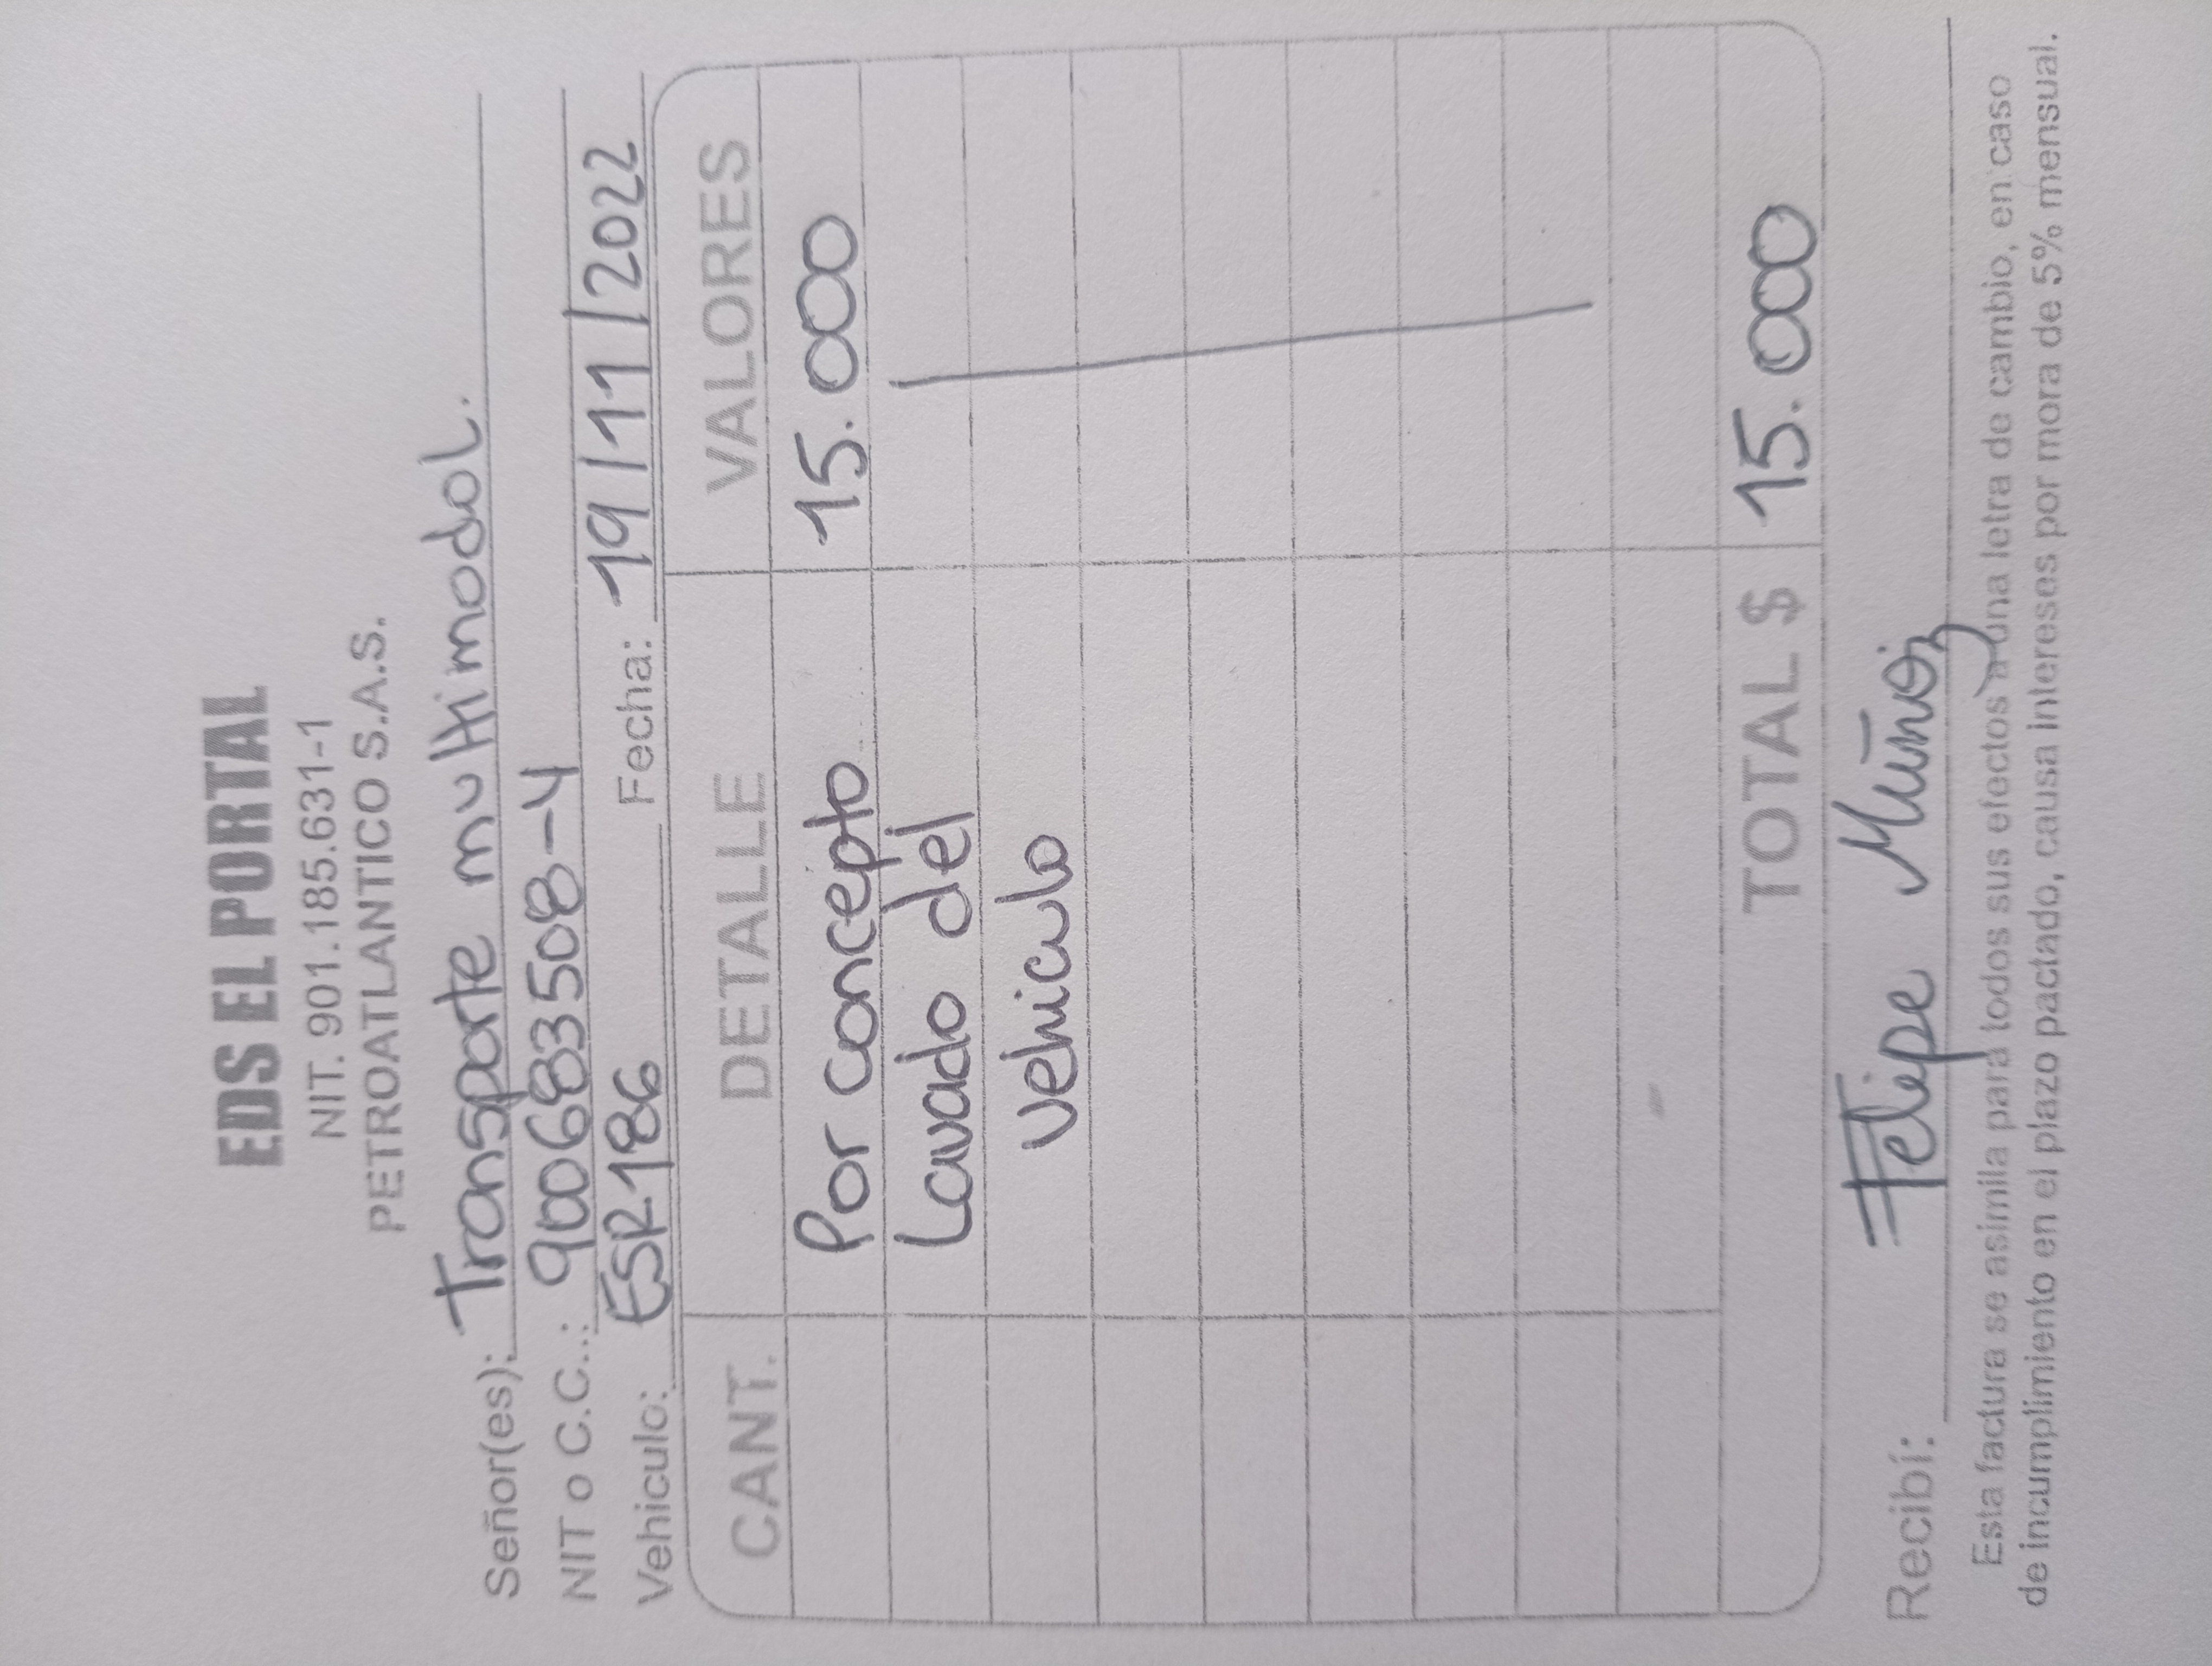 EDS EL PORTAL
NIT. 901.185.631-1
PETROATLANTICO S.A.S.
Señor(es): Transporte multimodal.
NIT o C.C.: 900683508-4
Vehiculo: ESR186 Fecha: 19/11/2022
CANT. DETALLE VALORES
Por concepto 15.000
Lavado del
vehiculo
TOTAL $ 15.000
Recibí: Felipe Muñoz
Esta factura se asimila para todos sus efectos a una letra de cambio, en caso
de incumplimiento en el plazo pactado, causa intereses por mora de 5% mensual.